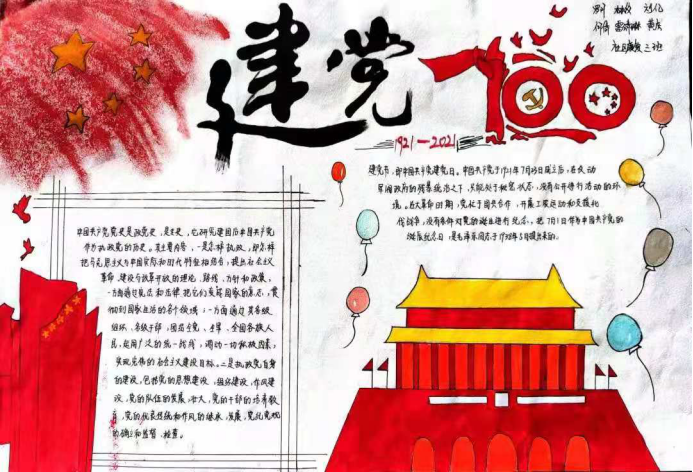 建党
100
1921—2021
社区康复三班
建党节,即中国共产党建党日。中国共产党于1921年7月23日成立后,在反动
军阀政府的残暴统治之下,只能处于秘密状态,没有公开进行活动的环
境。在大革命时期,党忙于国共合作、开展工农运动和支援北
伐战争,没有条件对党的诞生进行纪念。把7月1日作为中国共产党的
诞辰纪念日,是毛泽东同志于1938年5月提出来的。
中国共产党党史是政党史,是
作为执政党的历史。其主要内容,一是怎样执政,即怎样
把马克思主义与中国实际和时代特征相结合,提出社会主义
革命、建设与改革开放的理论、路线、方针和政策,
一方面通过宪法和法律把它们变为国家的意志,贯
彻到国家生活的各个领域;一方面通过其各级
组织、各级干部,团结全党、全军、全国各族人
民,运用广泛的统一战线,调动一切积极因素,
实现党伟的社会主义建设目标。二是执政党自身
的建设,包括党的思想建设、组织建设、作风建
设,党的队伍的发展、壮大,党的干部的培养教
育,党的优良传统和作风的继承、发展,党纪党规
的确立和监督、检查。